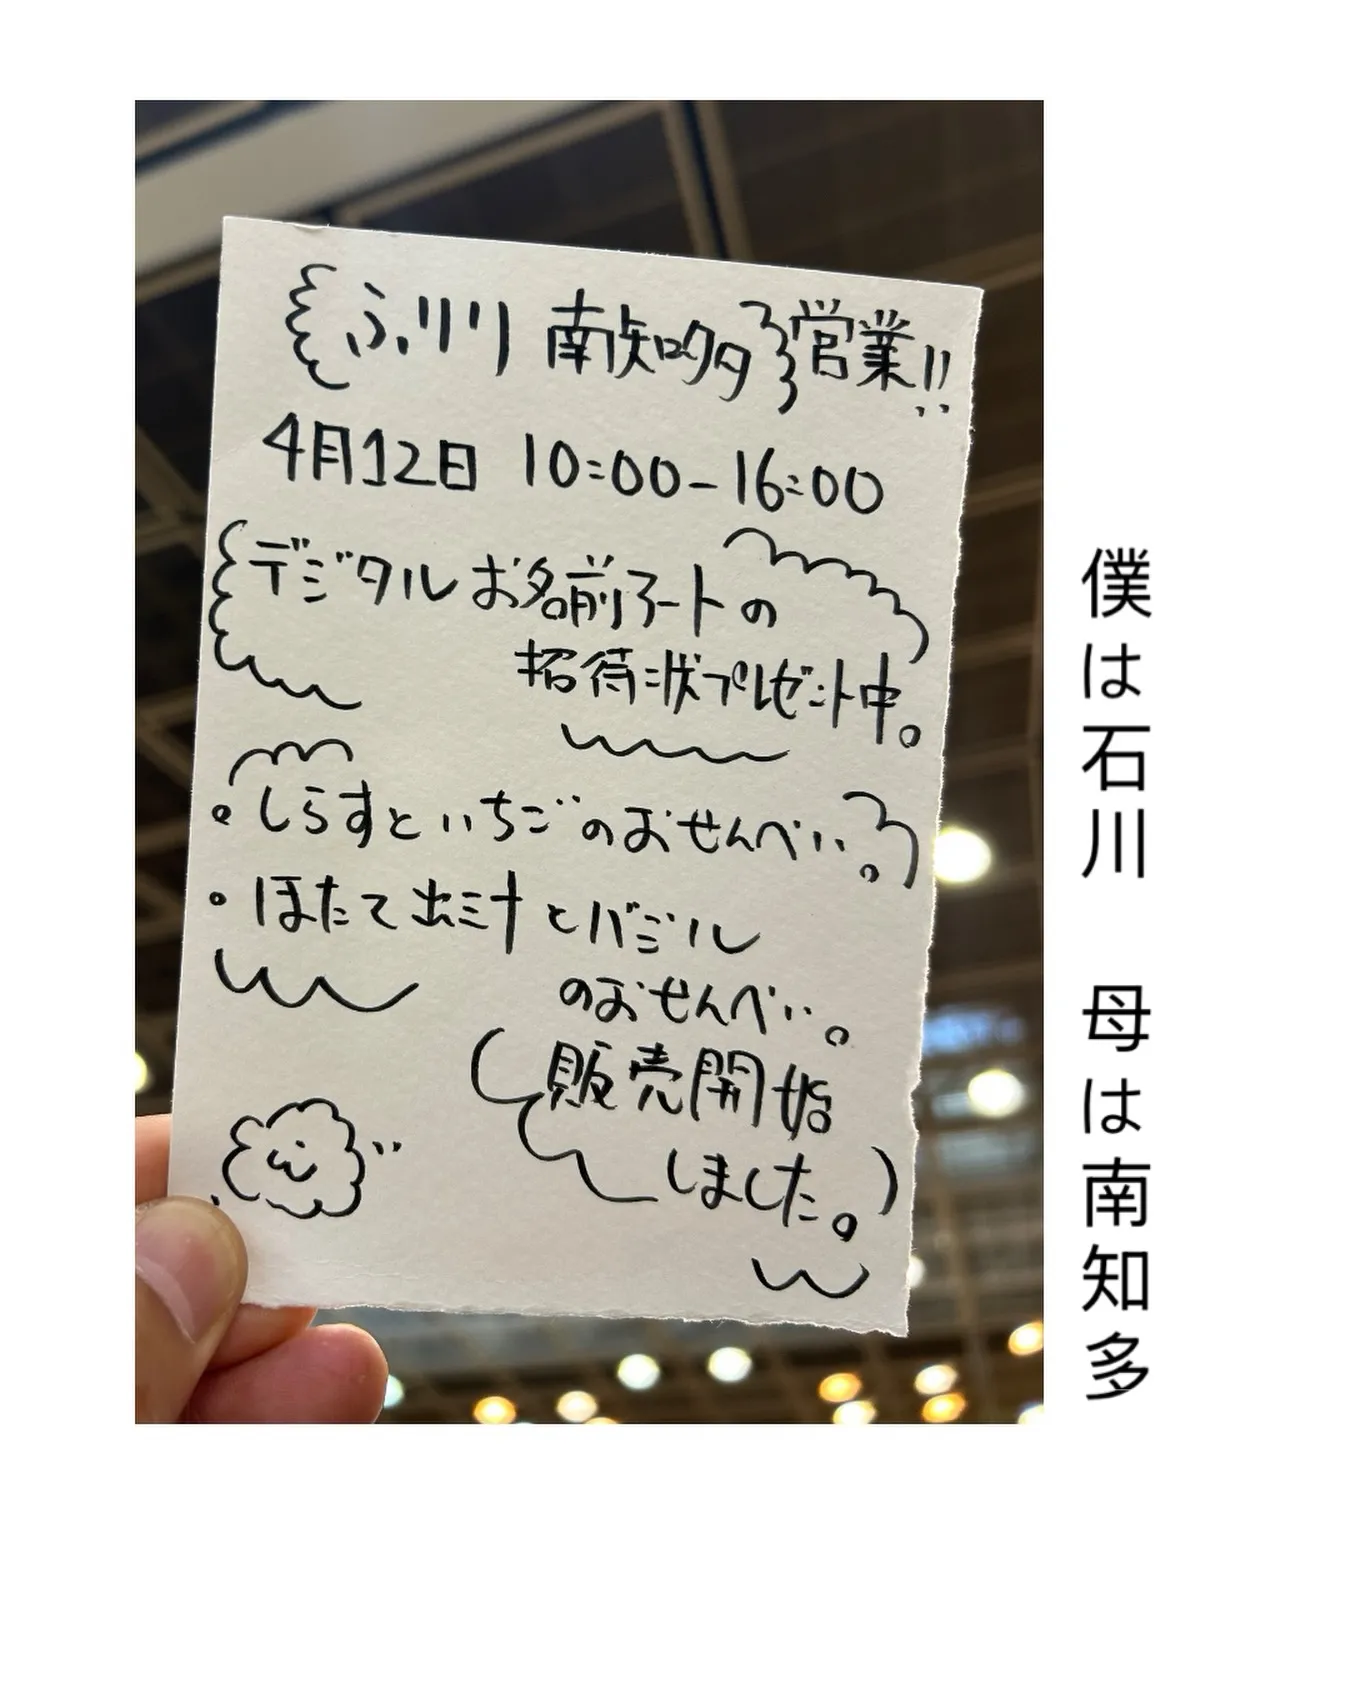 ふりり 南知多 営業!!
4月12日 10:00-16:00
デジタルお名前アートの
招待状プレゼント中。
。しらすといちごのおせんべい。
。ほたて出汁とバジル
のおせんべい。
(販売開始
しました。)
僕は石川 母は南知多